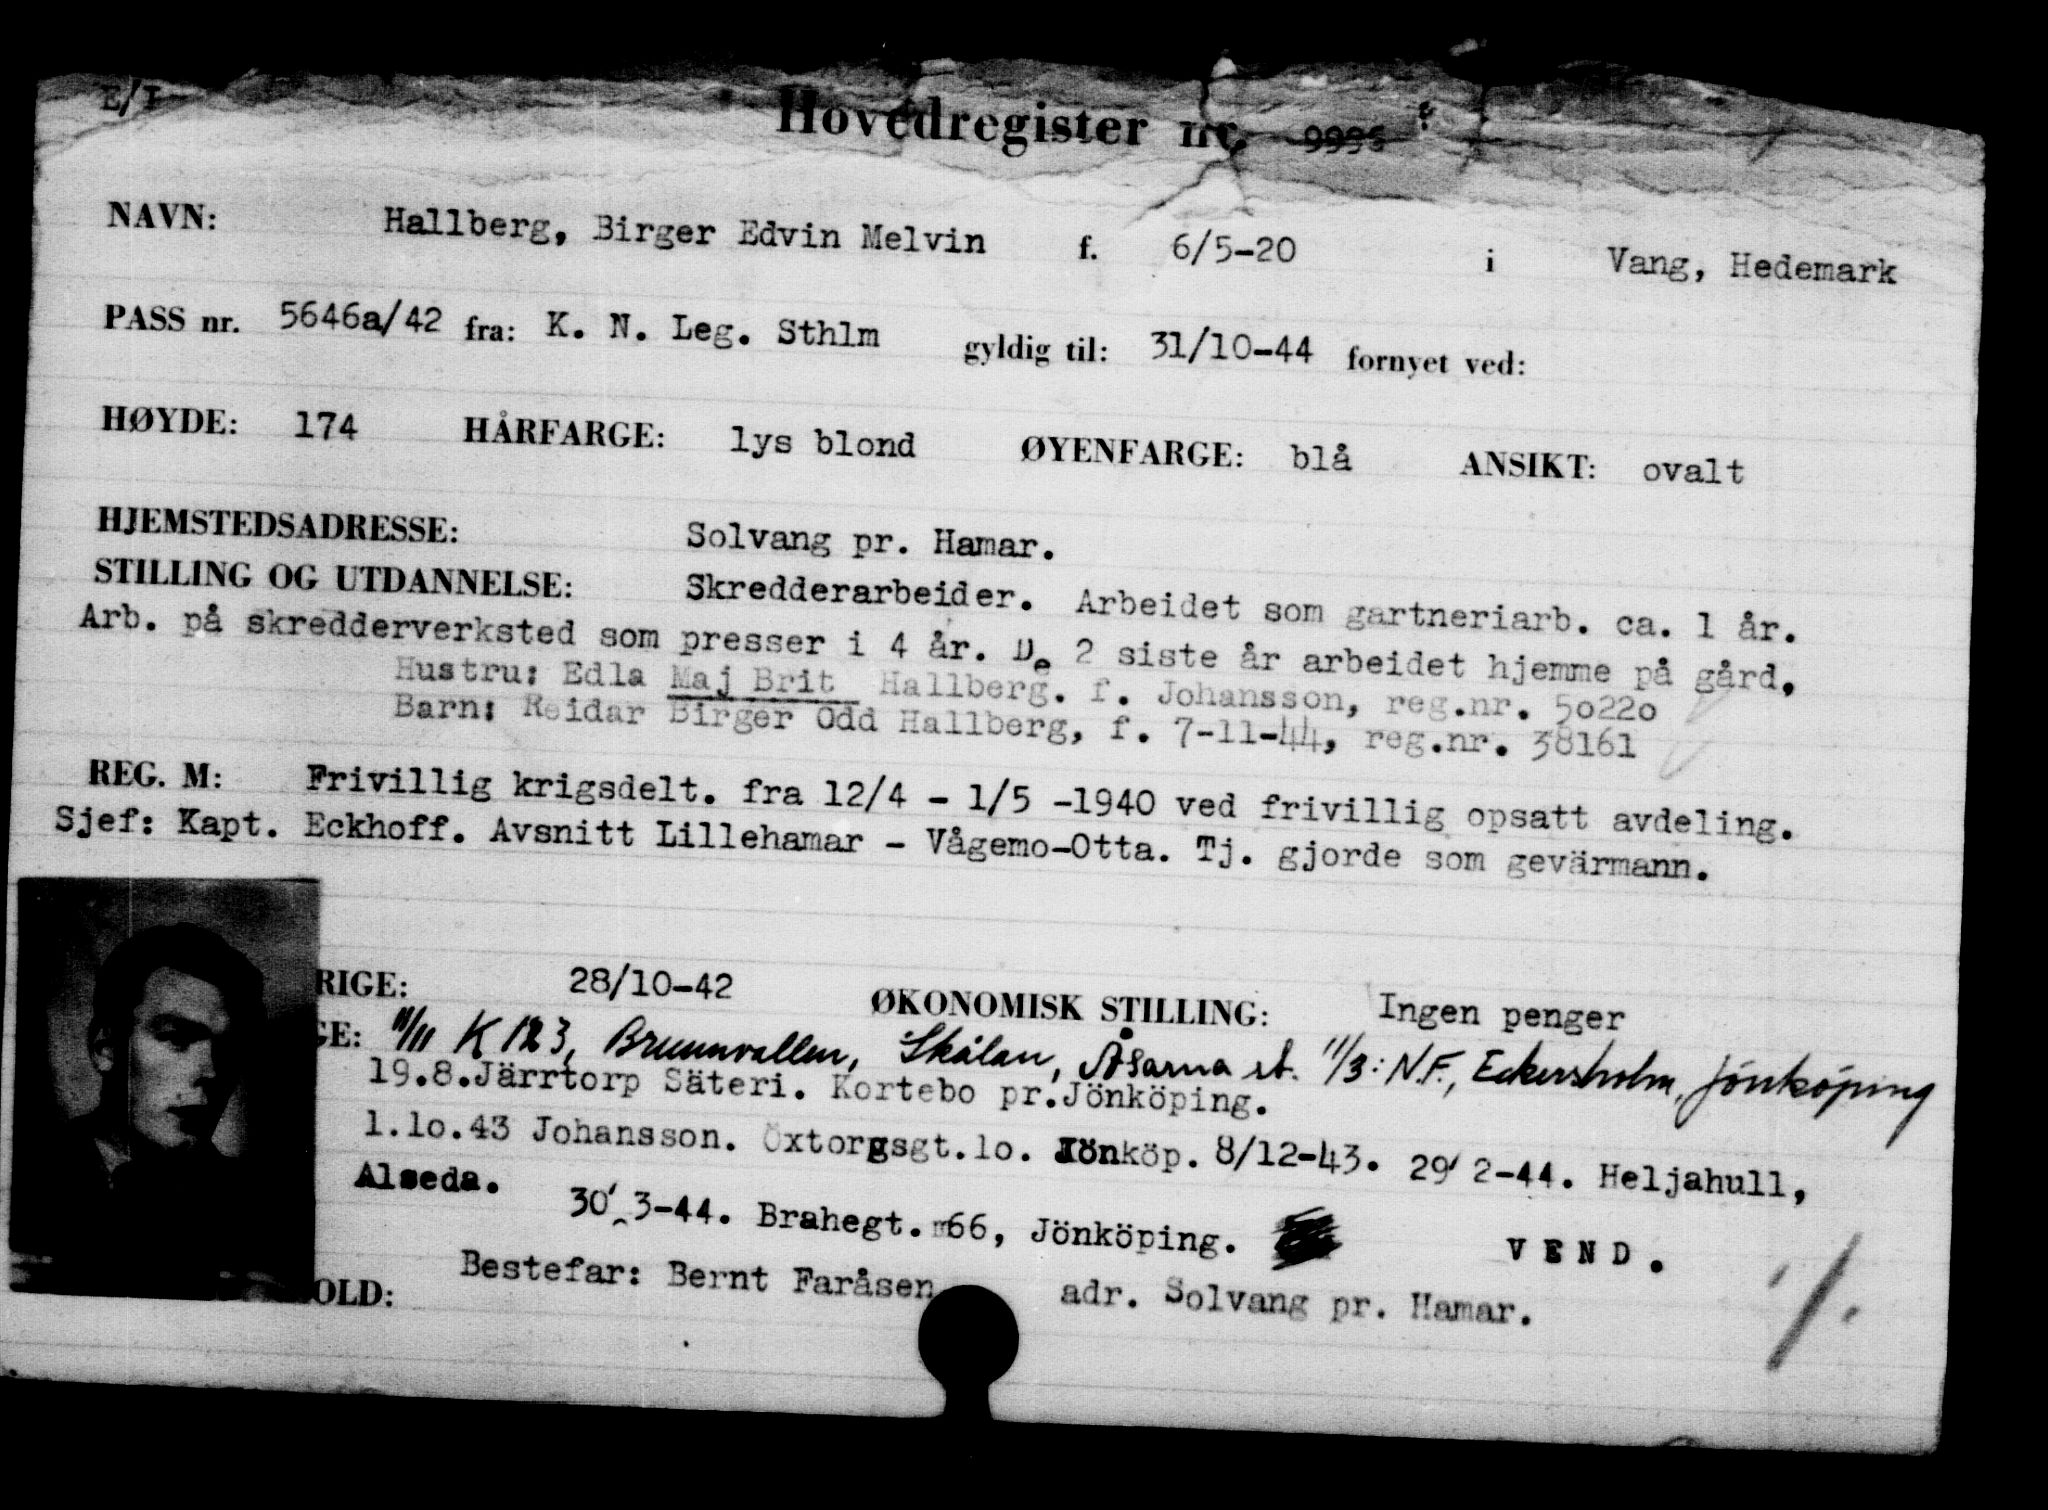 E/I
Hovedregister nr. 9996
NAVN: Hallberg, Birger Edvin Melvin f. 6/5-20 i Vang, Hedemark
PASS nr. 5646a/42 fra: K. N. Leg. Sthlm gyldig til: 31/10-44 fornyet ved:
HØYDE: 174 HÅRFARGE: lys blond ØYENFARGE: blå ANSIKT: ovalt
HJEMSTEDSADRESSE: Solvang pr. Hamar.
STILLING OG UTDANNELSE: Skredderarbeider. Arbeidet som gartneriarb. ca. 1 år.
Arb. på skredderverksted som presser i 4 år. De 2 siste år arbeidet hjemme på gård.
Hustru: Edla Maj Brit Hallberg. f. Johansson, reg.nr. 50220
Barn: Reidar Birger Odd Hallberg, f. 7-11-44, reg.nr. 38161
REG. M: Frivillig krigsdelt. fra 12/4 - 1/5 -1940 ved frivillig opsatt avdeling.
Sjef: Kapt. Eckhoff. Avsnitt Lillehamar - Vågemo-Otta. Tj. gjorde som gevärmann.
RIGE: 28/10-42 ØKONOMISK STILLING: Ingen penger
GE: 11/11 K 123, Brunnvallen, Skålan, Åsarna st. 11/3: N.F., Eckersholm, Jönköping
19.8.Järrtorp Säteri. Kortebo pr.Jönköping.
1.10.43 Johansson. Öxtorgsgt.10. Jönköp. 8/12-43. 29/2-44. Heljahull,
Alseda. 30/3-44. Brahegt. 66, Jönköping. VEND.
OLD: Bestefar: Bernt Faråsen adr. Solvang pr. Hamar.